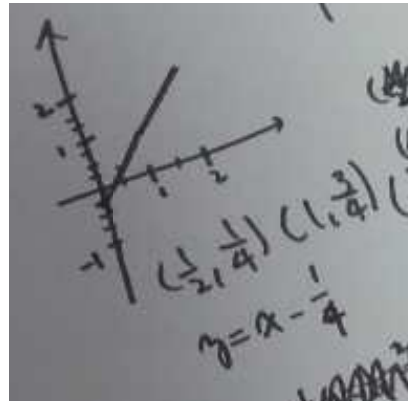 2
1
1
2
-1
(1/2, 1/4) (1, 3/4) (
y = x - 1/4